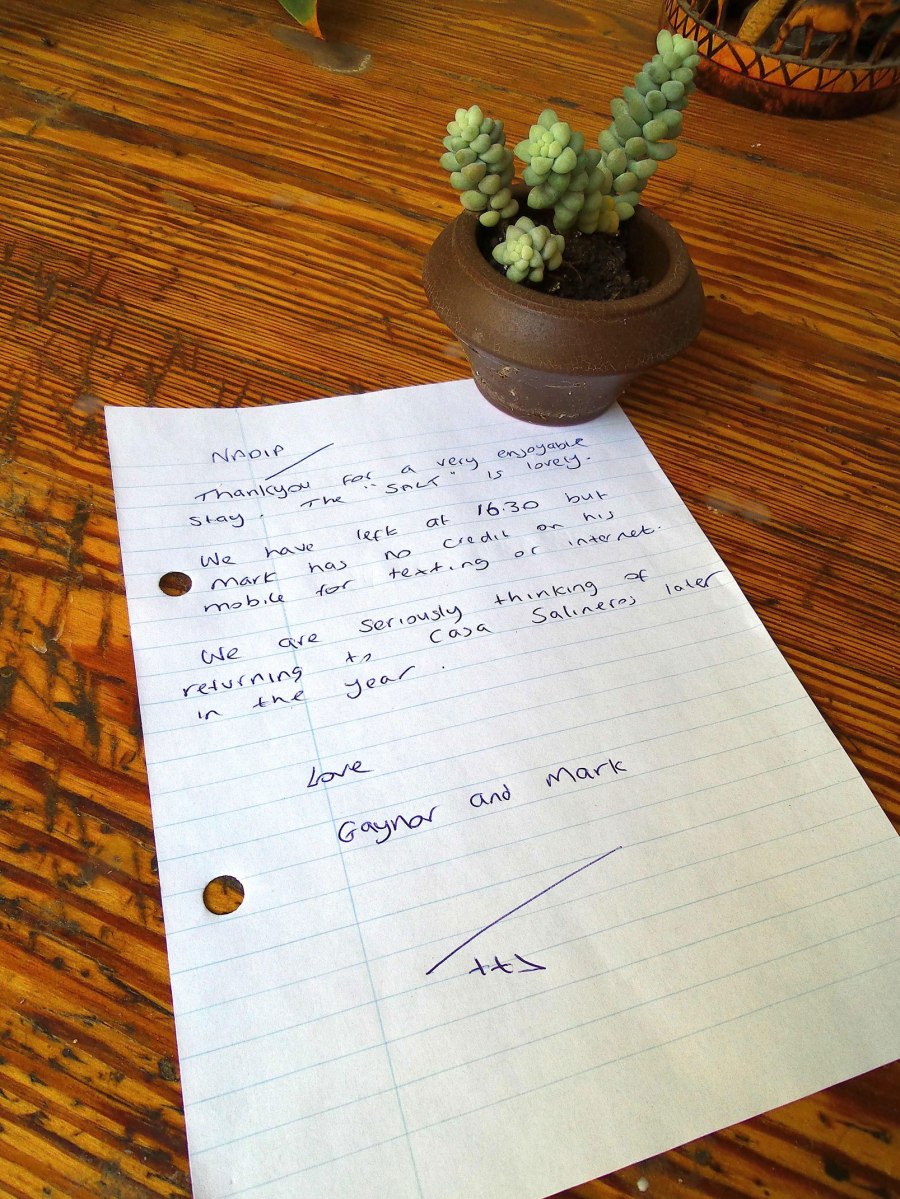 NADIA
Thankyou for a very enjoyable
stay. The "SALT" is lovely.
We have left at 16.30 but
Mark has no credit on his
mobile for texting or internet.
We are seriously thinking of
returning to Casa Salineros later
in the year.
Love
Gaynor and Mark